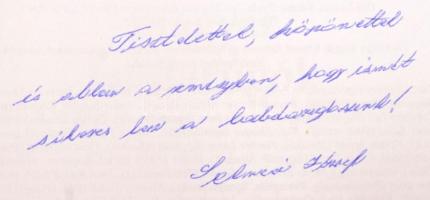 Tisztelettel, köszönettel
és abban a reményben, hogy ismét
sikeres lesz a labdarúgásunk!
József